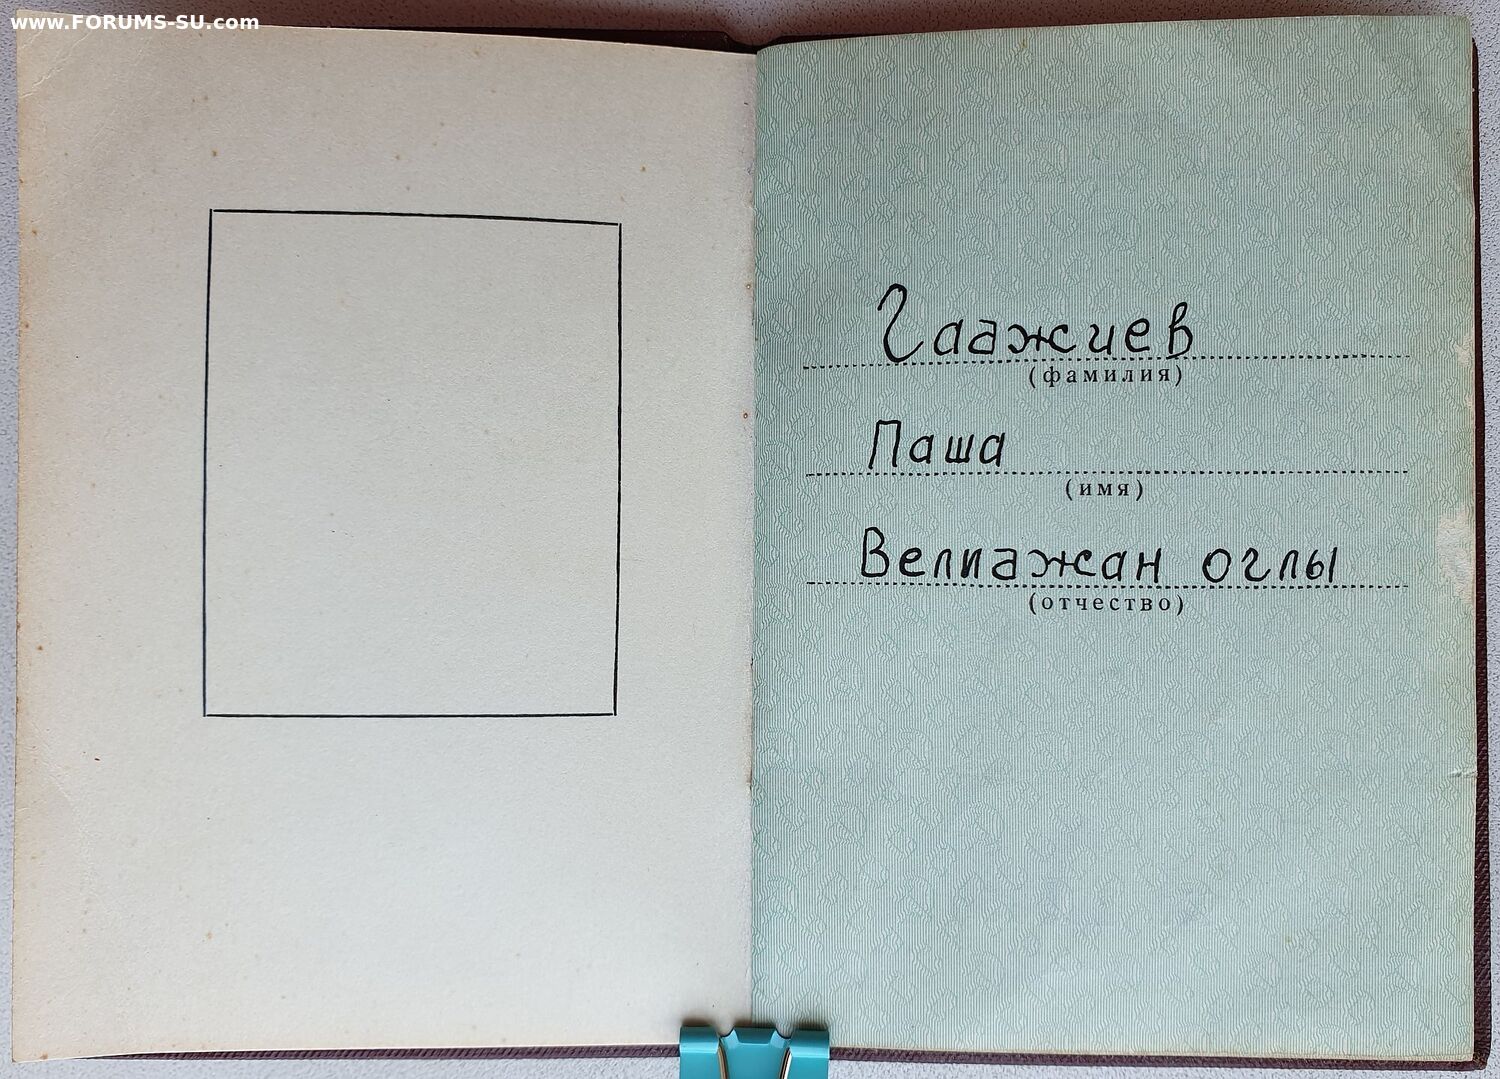 www.FORUMS-SU.com
Гаджиев
(фамилия)
Паша
(имя)
Велиджан оглы
(отчество)